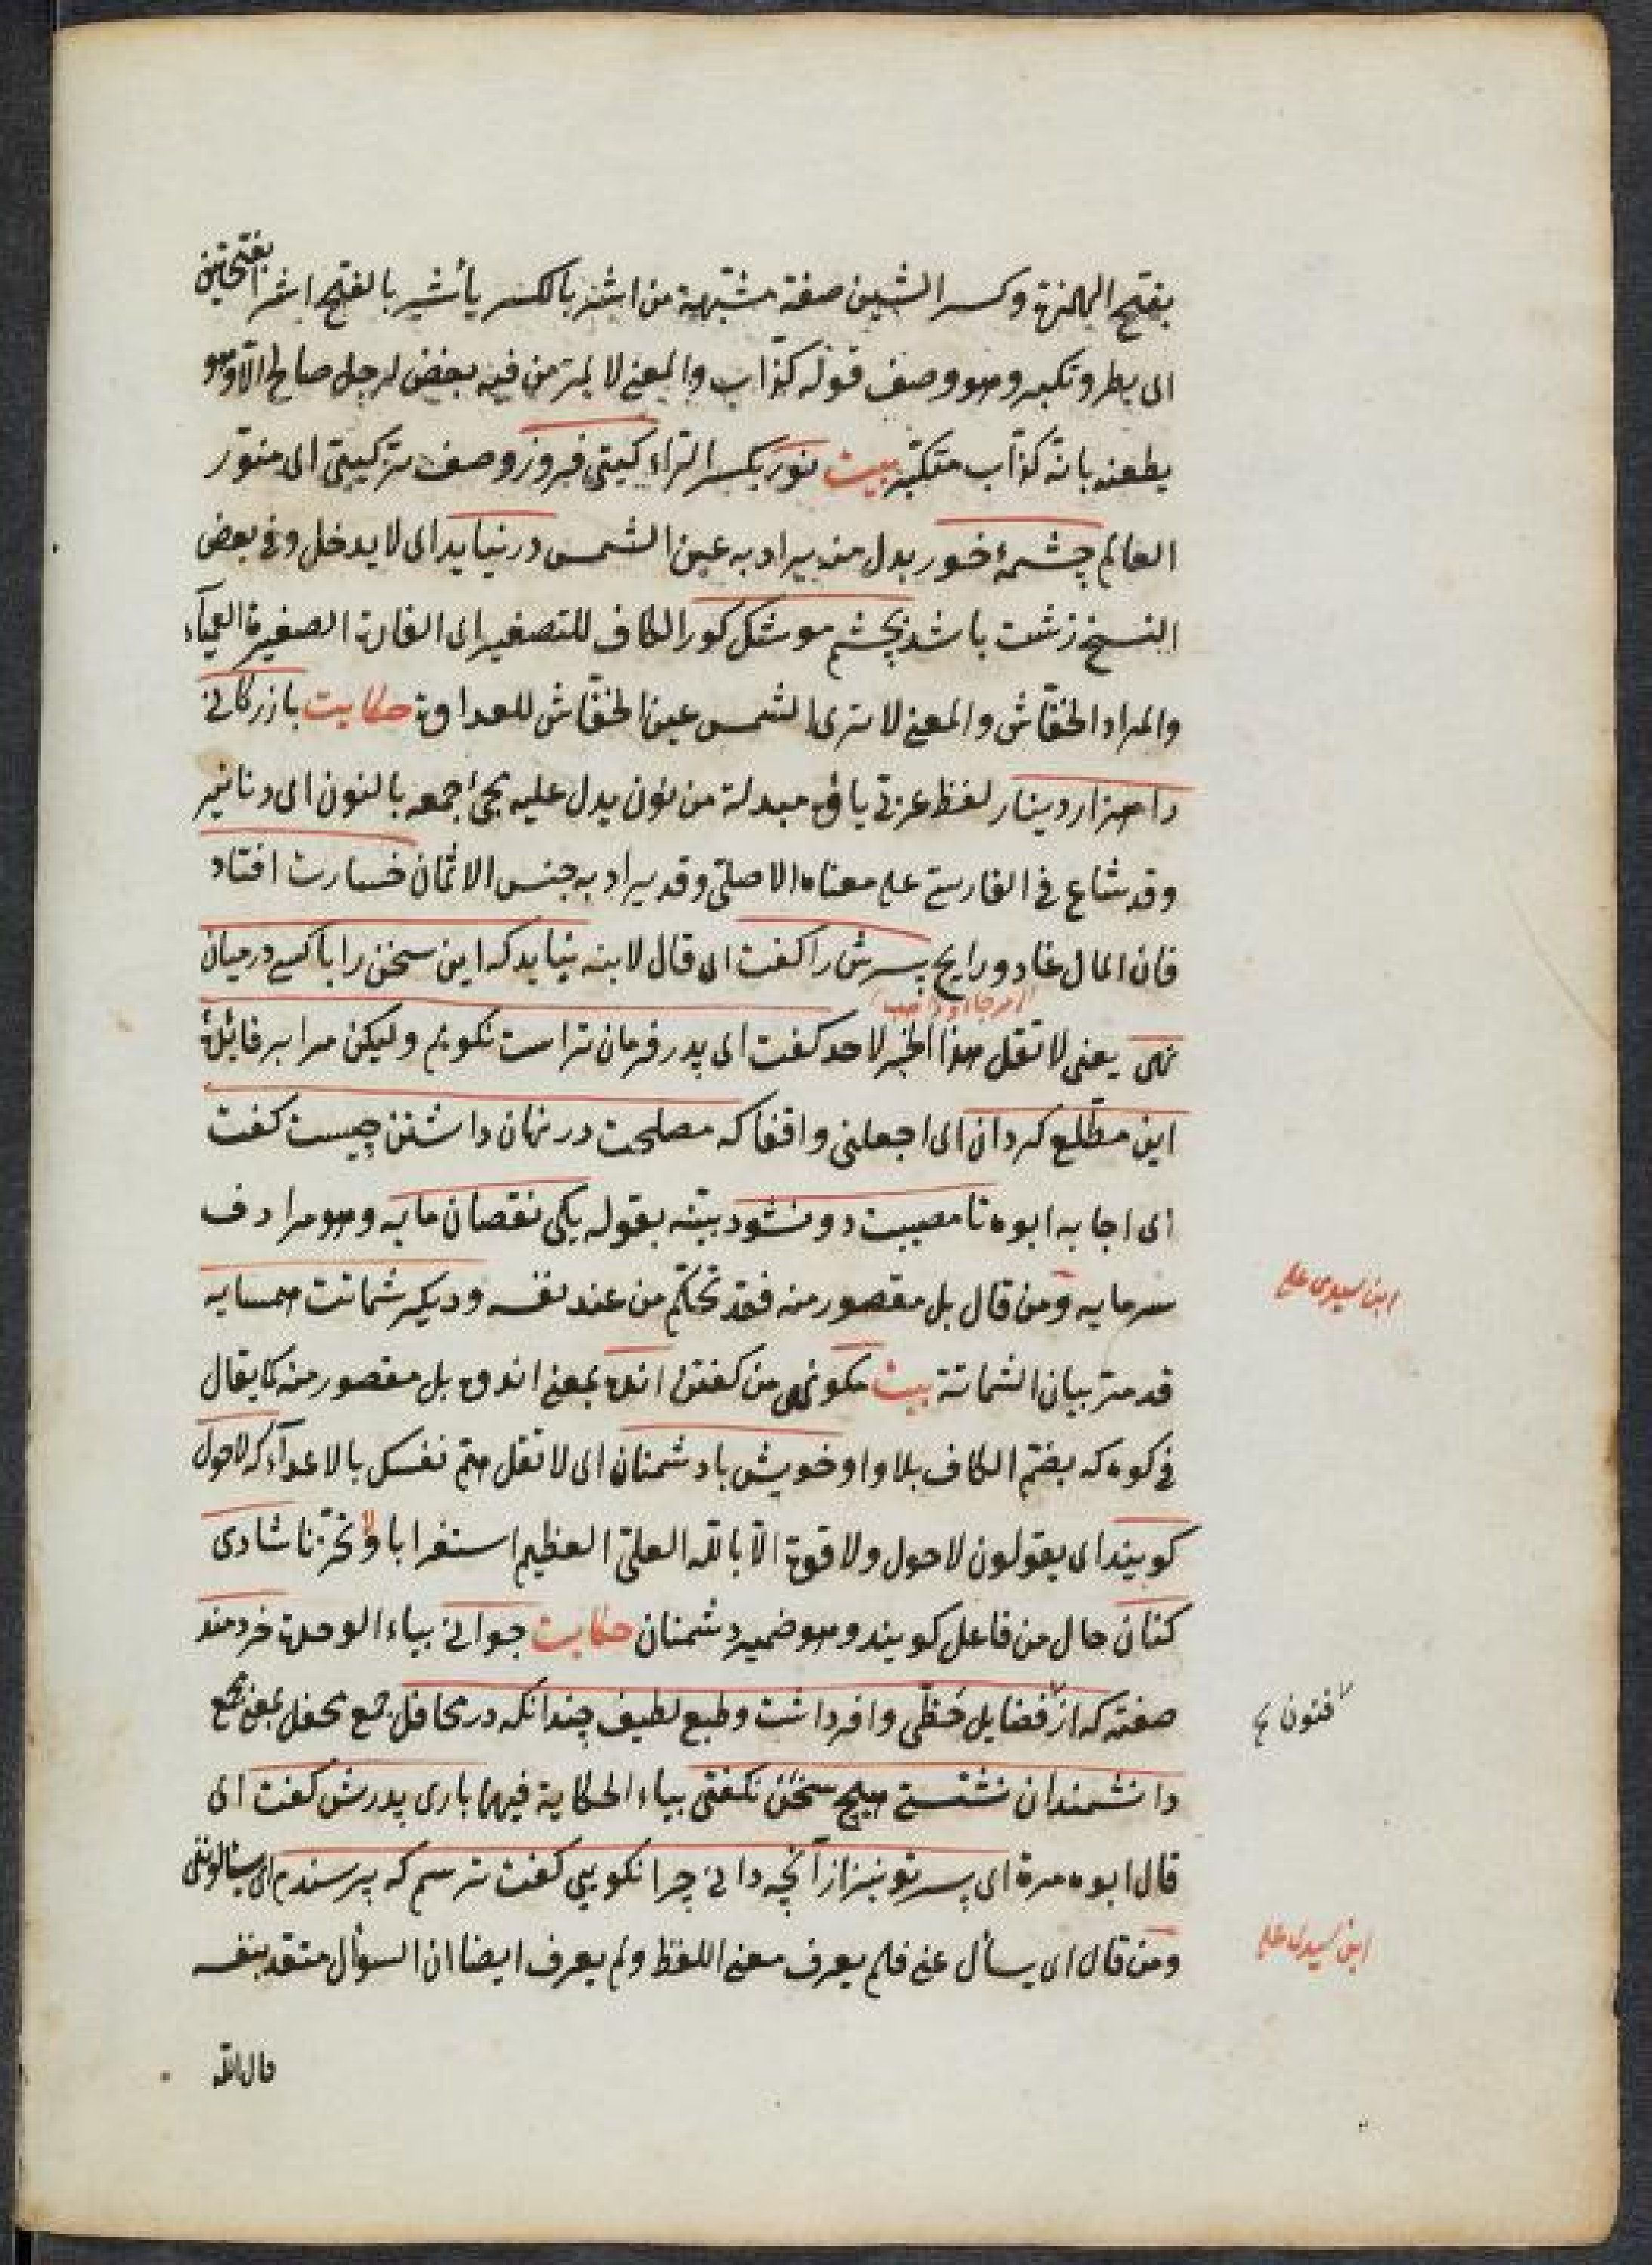 بفتح الهمزة وكسر الشين صفة مشبهة من اشر بالكسر يأشر بالفتح اشرا بفتحتين
اى بطر وتكبر وهو وصف قوله كذّاب والمعنى لا يمر من فيه بغض لرجل صالح الّا وهو
يطعنه بانه كذّاب متكبّر بيت نور بكسر الراء كيتى فروز وصف تركيبى اى منوّر
العالم چشمۀ خور بدل منه يراد به عين الشمس درنيايد اى لا يدخل وفى بعض
النسخ زشت باشد بچشم موشك كور الكاف للتصغير اى الفارة الصغيرة العمياء
والمراد الخفّاش والمعنى لا ترى الشمس عين الخفّاش للعداوة حكايت بازركانى
را هزار دينار لفظ عربى ياؤه مبدلة من نون يدل عليه مجئ جمعه بالنون اى دنانير
وقد شاع فى الفارسية على معناه الاصلى وقد يراد به جنس الاثمان خسارت افتاد
فان المال غاد ورايح پسرش را كفت اى قال لابنه نبايد كه اين سخن را با كسى درميان
نهى يعنى لا تقل هذا الخبر لاحد كفت اى پدر فرمان تراست نكويم وليكن مرا بر فائدۀ
اين مطّلع كردان اى اجعلنى واقفا كه مصلحت در نهان داشتن چيست كفت
اى اجابه ابوه تا مصيبت دو نشود بيّنه بقوله يكى نقصان مايه وهو مرادف
سرمايه ومن قال بل مقصور منه فقد تحكّم من عند نفسه وديكر شماتت همسايه
ابن سيدى على
قد مرّ بيان الشماتة بيت مكو نهى من كفتن انده بمعنى اندوه بل مقصور منه كما يقال
فى كوه كه بضم الكاف بلا واو خويش با دشمنان اى لا تقل همّ نفسك بالاعدآء كه لاحول
كويند اى يقولون لاحول ولا قوة الّا بالله العلىّ العظيم استغرابا وتحزّنا شادى
كنان حال من فاعل كويند وهو ضمير دشمنان حكايت جوانى بياء الوحدة خردمند
صفته كه از فضايل حظّى وافر داشت وطبع لطيف چندانكه در محافل جمع محفل بمعنى مجمع
فنون
دانشمندان نشستى هيچ سخن نكفتى بياء الحكاية فيهما بارى پدرش كفت اى
قال ابوه مرة اى پسر تو نيز از آنچه دانى چرا نكويى كفت ترسم كه پرسندم اى يسألوننى
ومن قال اى يسأل عنى فلم يعرف معنى اللفظ ولم يعرف ايضا ان السؤال متعدّ بنفسه
ابن سيدى على
قال الله